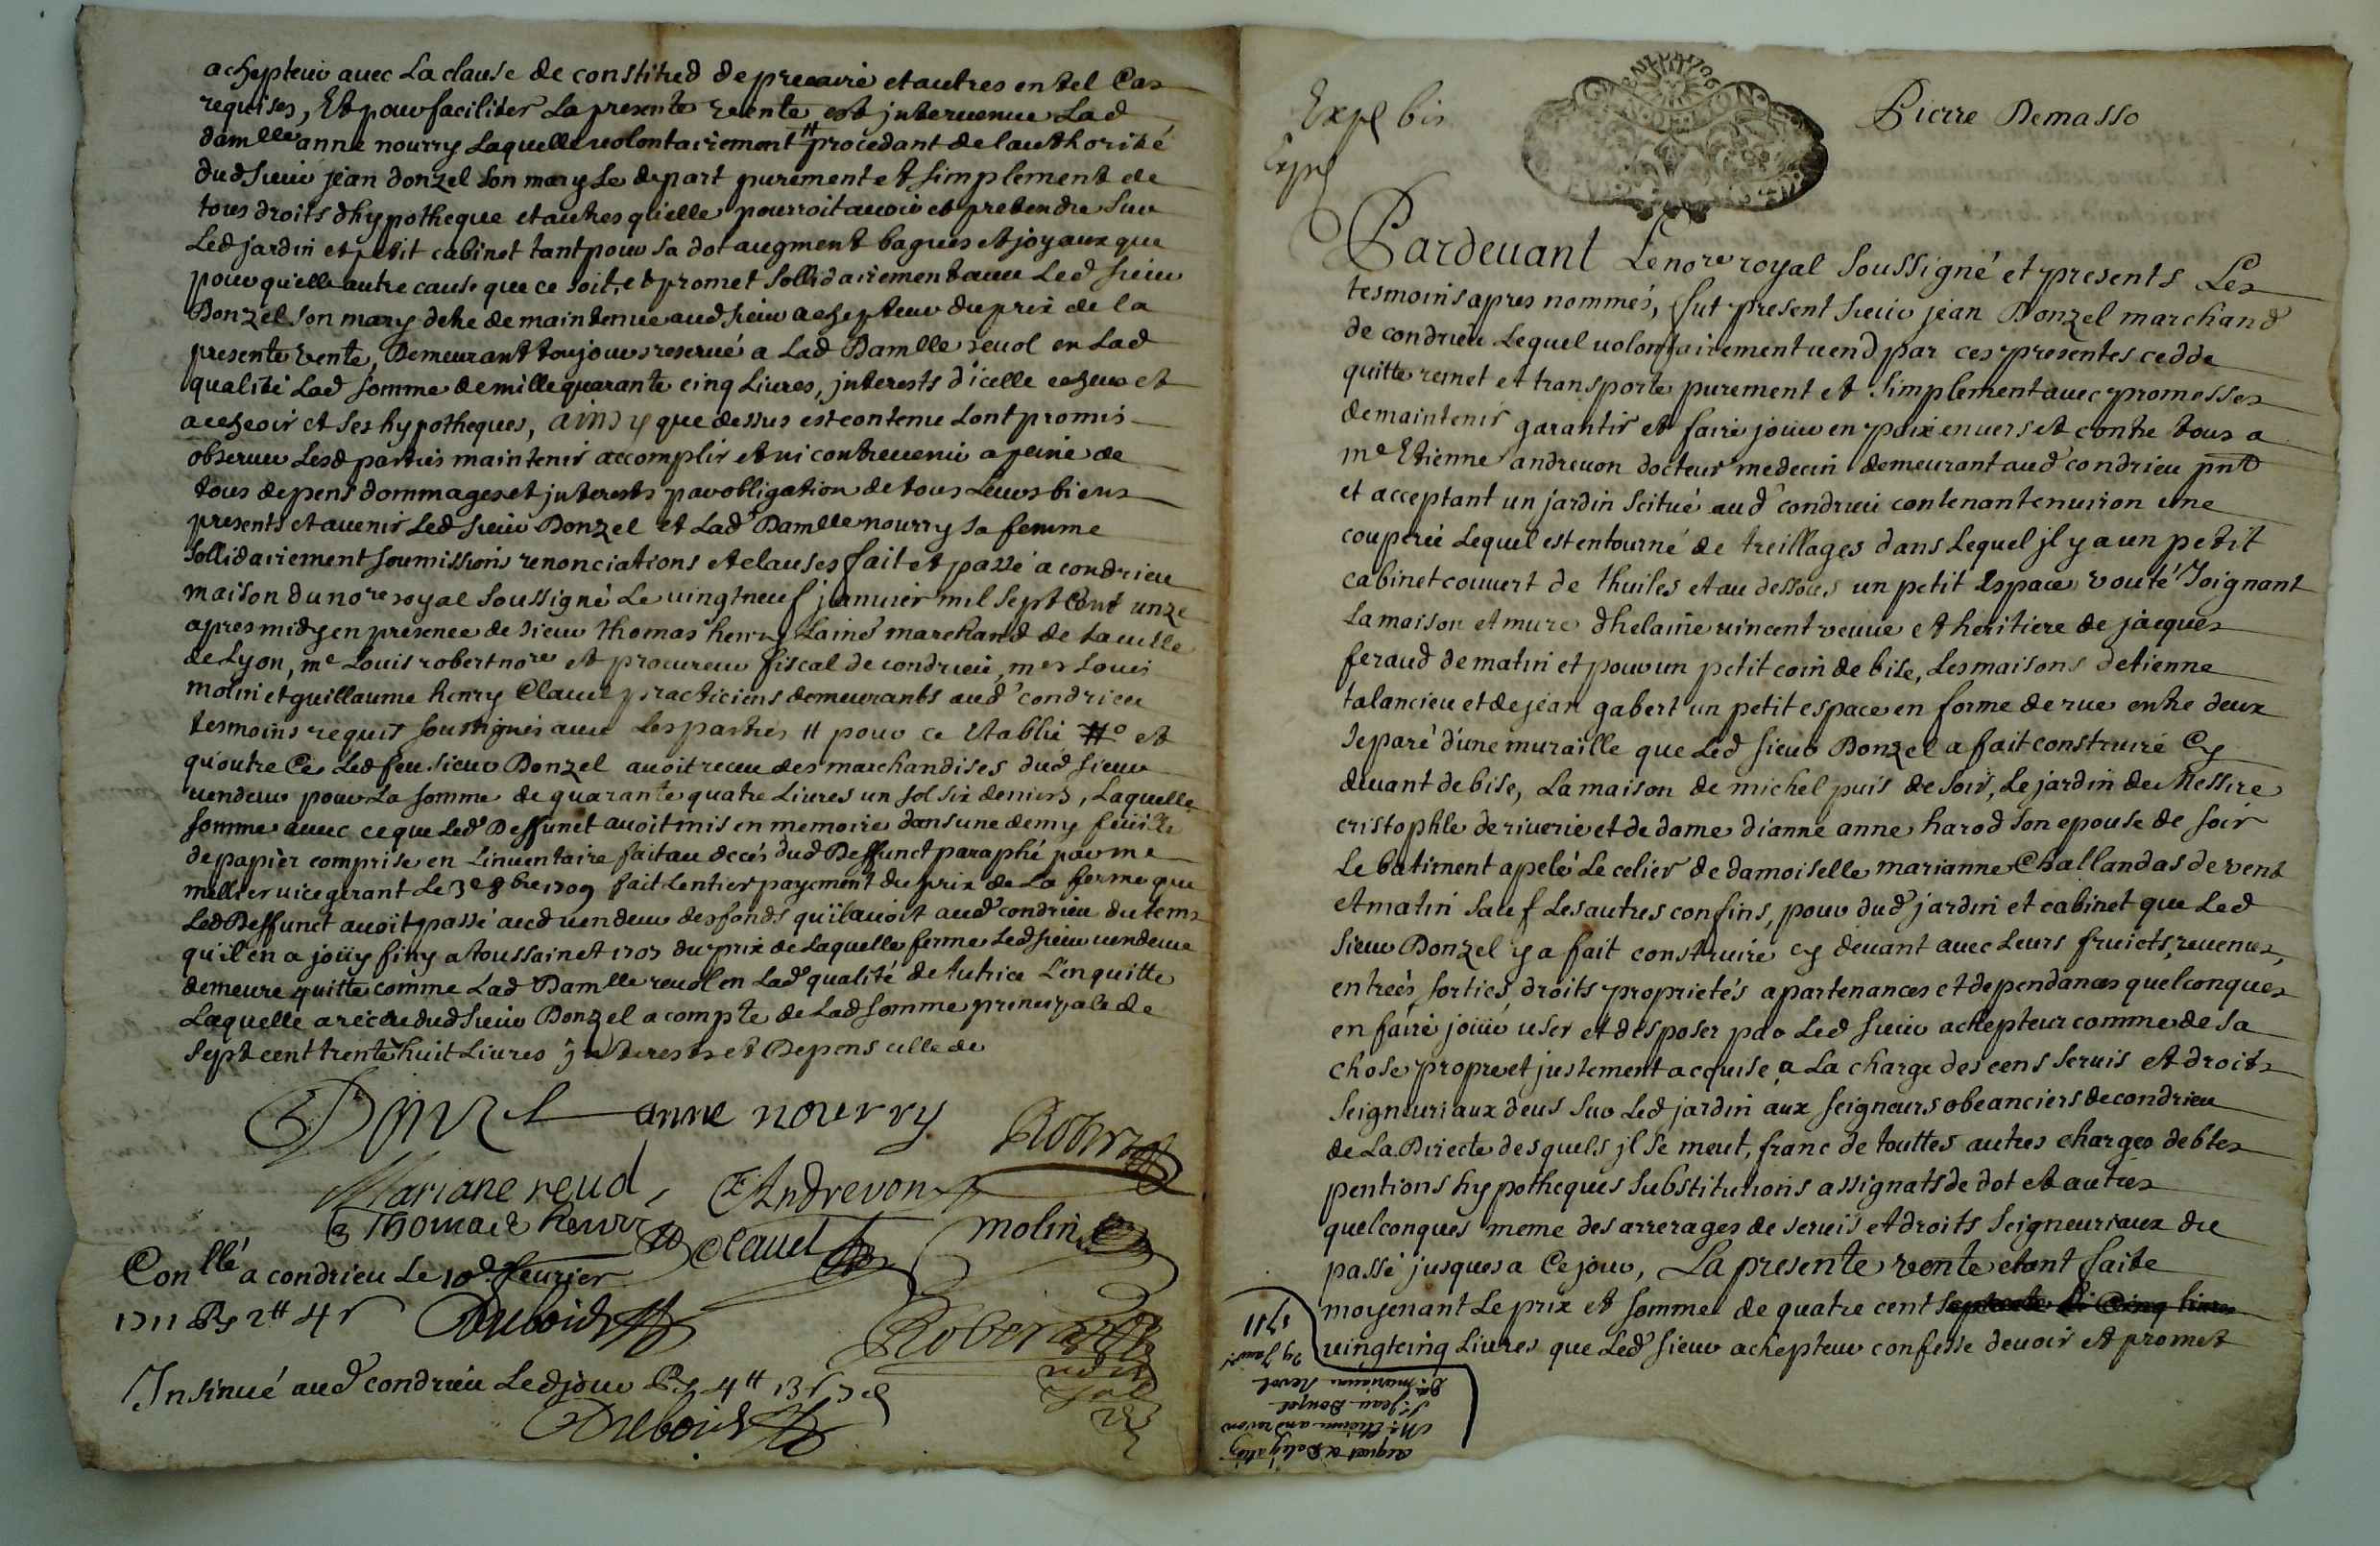 achepteur avec la clause de constitud de precaire et autres en tel cas
requises, Et pour faciliter la presente vente est jntervenue lad
damlle anne nourry laquelle volontairement # procedant de lauthorité
dud sieur jean donzel son mary se depart purement et simplement de
tous droits dhypotheque et autres quelle pourroit avoir et pretendre sur
led jardin et petit cabinet tant pour sa dot augment bagues et joyaux que
pour quelle autre cause que ce soit, et promet sollidairement avec led sieur
Donzel son mary detre de maintenue aud sieur achepteur du prix de la
presente vente, Demeurant toujours reservé a lad Damlle revol en lad
qualité lad somme de mille quarante cinq livres, jnterests d'icelle echeus et
a echeoir et ses hypotheques, ainsy que dessus est contenu lont promis
observer lesd parties maintenir accomplir et ni contrevenir a peine de
tous depens dommages et jnterests par obligation de tous leurs biens
presents et avenir led sieur Donzel et lad Damlle nourry sa femme
sollidairement soumissions renonciations et clauses fait et passé a condrieu
maison du nore royal soussigné le vingtneuf janvier mil sept cent unze
apres midy en presence de sieur thomas henry lainé marchand de la ville
de Lyon, me Louis robert nore et procureur fiscal de condrieu, mes Louis
molin et guillaume henry Clavel practiciens demeurants aud condrieu
tesmoins requis soussignés avec les parties # pour ce etablie #o et
qu'outre ce led feu sieur Donzel avoit receu des marchandises dud sieur
vendeur pour la somme de quarante quatre livres un sol six deniers, laquelle
somme avec ce que led Deffunct avoit mis en memoire dans une demy feuille
de papier comprise en linventaire fait au decés dud Deffunct paraphé par me
mellier vicegerant le 3e 8bre 1709 fait lentier payement du prix de la ferme que
led Deffunct avoit passé aud vendeur des fonds qu'il avoit aud condrieu du tems
qu'il en a joüy finy a toussainct 1707 du prix de laquelle ferme led sieur vendeur
demeure quitte comme lad Damlle revol en lad qualité de tutrice l'en quitte
laquelle a receu dud sieur Donzel a compte de lad somme principale de
sept cent trente huit livres jnterests et Depens celle de
Donzel anne nourry Robert
Mariane revol, E Andrevon
Thomas henry Clavel molin
Conllé a condrieu le 10e fevrier
1711 Rs 2# 4s Duboids Robert
Insinué aud condrieu led jour Rs 4# 13s 7d
Duboids
Expé bis
Expé
GENERALITE DE LYON
Pierre Demasso
Pardevant le nore royal soussigné et presents les
tesmoins apres nommés, fut present sieur jean Donzel marchand
de condrieu lequel volontairement vend par ces presentes cedde
quitte remet et transporte purement et simplement avec promesses
de maintenir garantir et faire joüir en paix envers et contre tous a
me Etienne andrevon docteur medecin demeurant aud condrieu pnt
et acceptant un jardin scitué aud condrieu contenant environ une
couperée lequel est entourné de treillages dans lequel jl y a un petit
cabinet couvert de thuiles et au dessous un petit Espace vouté Joignant
la maison et mure dhelaine vincent veuve et heritiere de jacques
feraud de matin et pour un petit coin de bise, les maisons detienne
talancieu et de jean gabert un petit espace en forme de rue entre deux
separé d'une muraille que led sieur Donzel a fait construire cy
devant de bise, la maison de michel puis de soir, le jardin de Messire
cristophle de riverie et de dame dianne anne harod son epouse de soir
le batiment apelé le celier de damoiselle marianne Challandas de vent
et matin sauf les autres confins, pour dud jardin et cabinet que led
sieur Donzel y a fait construire cy devant avec leurs fruicts, revenus,
entreés sorties droits proprietés apartenances et dependances quelconques
en faire joüir user et desposer par led sieur achepteur comme de sa
chose propre et justement acquise, a la charge des cens servis et droits
seigneuriaux deus sur led jardin aux seigneurs obeanciers de condrieu
de la Directe desquels jl se meut, franc de touttes autres charges debtes
pentions hypotheques substitutions assignats de dot et autres
quelconques meme des arrerages de servis et droits seigneuriaux du
passé jusques a ce jour, La presente vente etant faite
moyenant le prix et somme de quatre cent septente cinq livres
vingtcinq livres que led sieur achepteur confesse devoir et promet
acquet et Delegation
Me Etienne andrevon
Sr Jean Donzel
Dlle marianne Revol
29 Janvr
1711